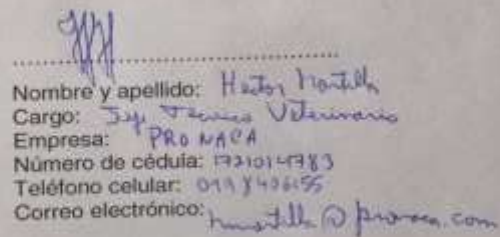 Nombre y apellido: Hector Mantilla
Cargo: Jefe Técnico Veterinario
Empresa: PRONACA
Número de cédula:
Teléfono celular:
Correo electrónico: hmantilla@pronaca.com